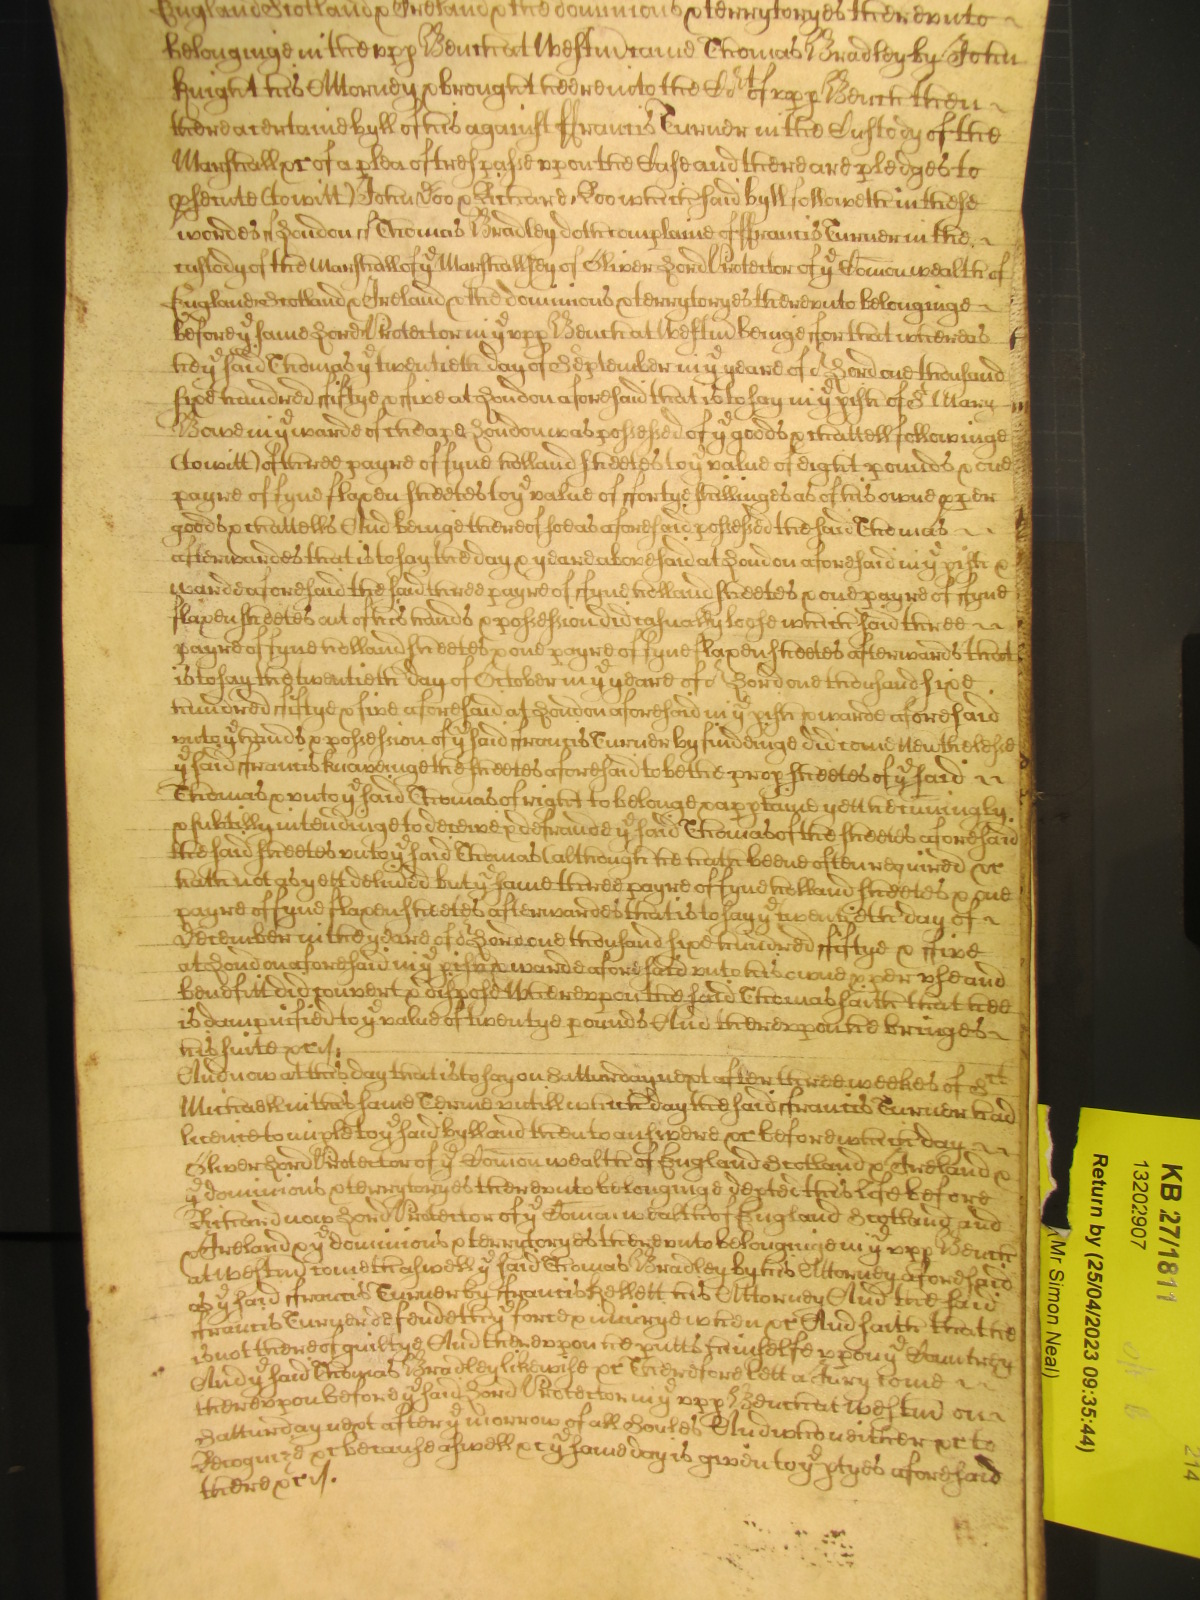 England Scotland & Ireland & the dominions & terrytoryes thereunto
belonginge in the upp Bench at Westm came Thomas Bradley by John
Knight his Attorney & brought heere into the Co't of upp Bench then
there a certaine byll of his against ffrancis Turner in the Custody of the
Marshall &c of a plea of trespasse uppon the Case and there are pledges to
psecute (to witt) John Doo & Richard Roo which said byll followeth in these
wordes ss London ss Thomas Bradley doth complaine of ffrancis Turner in the
custody of the Marshall of ye Marshallsey of Oliver Lord Protector of ye Comon wealth of
England Scotland & Ireland & the dominions & terrytoryes thereunto belonginge
before ye same Lord Protector in ye upp Bench at Westm beinge ffor that whereas
he ye said Thomas ye twentieth day of September in ye yeare of or Lord one thousand
sixe hundred ffiftye & ffive at London aforesaid that is to say in ye pish of St Mary
Bowe in ye warde of Cheape London was possessed of ye goods & chattells followinge
(to witt) of three payre of fyne holland sheetes to ye value of eight pounds & one
payre of fyne flaxen sheetes to ye value of ffortye shillinges as of his owne pper
goods & chattells And beinge thereof soe as aforesaid possessed the said Thomas
afterwardes that is to say the day & yeare abovesaid at London aforesaid in ye pish &
warde aforesaid the said three payre of ffyne holland sheetes & one payre of ffyne
flaxen sheetes out of his hands & possession did casually loose which said three
payre of fyne holland sheetes & one payre of fyne flaxen sheetes afterwards that
is to say the twentieth day of October in ye yeare of or Lord one thousand sixe
hundred ffiftye & five aforesaid at London aforesaid in ye pish & warde aforesaid
unto ye hands & possession of ye said ffrancis Turner by findeinge did come Neverthelesse
ye said ffrancis knoweinge the sheetes aforesaid to be the prop sheetes of ye said
Thomas & unto ye said Thomas of right to belonge & apptaine yett he cuningly
& subtilly intendinge to deceive & defraude ye said Thomas of the sheetes aforesaid
the said sheetes unto ye said Thomas (although he hath beene often required &c
hath not as yett delived but ye same three payre of fyne holland sheetes & one
payre of fyne flaxen sheetes afterwardes that is to say ye twentieth day of
December in the yeare of or Lord one thousand sixe hundred ffiftye & ffive
at London aforesaid in ye pish & warde aforesaid unto his owne pper use and
benefitt did convert & dispose Whereuppon the said Thomas saith that hee
is dampnified to ye value of twentye pounds And thereuppon he bringes
his suite &c
And now at this day that is to say on Satturday next after three weekes of St
Michaell in this same Terme untill which day the said ffrancis Turner had
licence to imple to ye said byll and then to answere &c before which day
Oliver Lord Protector of ye Comon wealth of England Scotland & Ireland &
ye dominions & terrytoryes thereunto belonginge depted this life before
Richard now Lord Protector of ye Comon wealth of England Scotland and
Ireland & ye dominions & terrytoryes thereunto belonginge in ye upp Bench
at Westm cometh aswell ye said Thomas Bradley by his Attorney aforesaid
as ye said ffrancis Turner by ffrancis Kellett his Attorney And the said
ffrancis Turner defendeth ye force & iniurye when &c And saith that he
is not thereof guiltye And thereuppon he putts himselfe uppon ye Countrey
And ye said Thomas Bradley likewise &c Therefore lett a Jury come
thereuppon before ye said Lord Protector in ye upp Bench at Westm on
Satturday next after ye morrow of all Soules And who neither &c to
Recognize &c because aswell &c ye same day is given to ye ptyes aforesaid
there &c
KB 27/1811
13202907
Return by (25/04/2023 09:35:44)
(Mr Simon Neal)
214